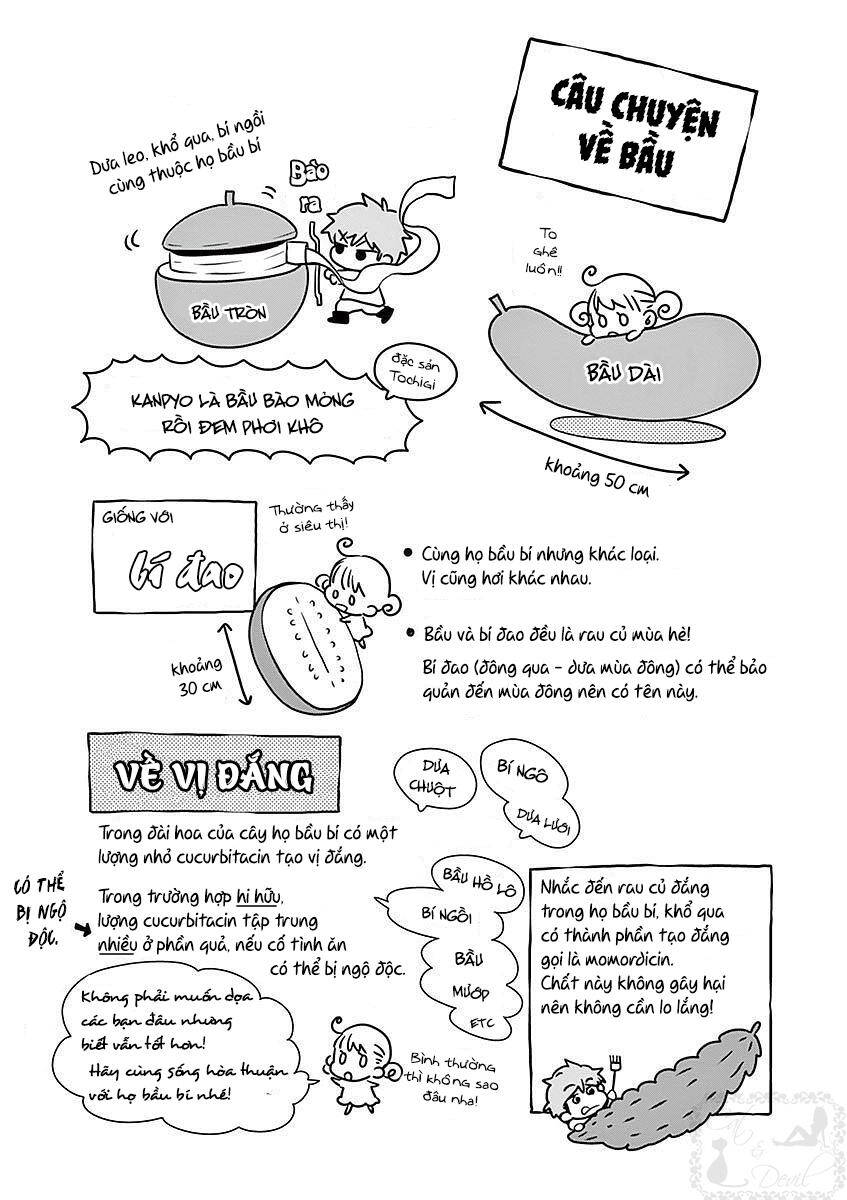 CÂU CHUYỆN
VỀ BẦU
Dưa leo, khổ qua, bí ngồi
cùng thuộc họ bầu bí
Bào
ra
BẦU TRÒN
To
ghê
luôn!!
BẦU DÀI
khoảng 50 cm
đặc sản
Tochigi
KANPYO LÀ BẦU BÀO MỎNG
RỒI ĐEM PHƠI KHÔ
GIỐNG VỚI
bí đao
Thường thấy
ở siêu thị!
khoảng
30 cm
• Cùng họ bầu bí nhưng khác loại.
Vị cũng hơi khác nhau.
• Bầu và bí đao đều là rau củ mùa hè!
Bí đao (đông qua - dưa mùa đông) có thể bảo
quản đến mùa đông nên có tên này.
VỀ VỊ ĐẮNG
Trong đài hoa của cây họ bầu bí có một
lượng nhỏ cucurbitacin tạo vị đắng.
CÓ THỂ
BỊ NGỘ
ĐỘC.
Trong trường hợp hi hữu,
lượng cucurbitacin tập trung
nhiều ở phần quả, nếu cố tình ăn
có thể bị ngộ độc.
DƯA
CHUỘT
BÍ NGÔ
DƯA LƯỚI
BẦU HỒ LÔ
BÍ NGỒI
BẦU
MƯỚP
ETC
Không phải muốn dọa
các bạn đâu nhưng
biết vẫn tốt hơn!
Hãy cùng sống hòa thuận
với họ bầu bí nhé!
Bình thường
thì không sao
đâu nha!
Nhắc đến rau củ đắng
trong họ bầu bí, khổ qua
có thành phần tạo đắng
gọi là momordicin.
Chất này không gây hại
nên không cần lo lắng!
&
Devil